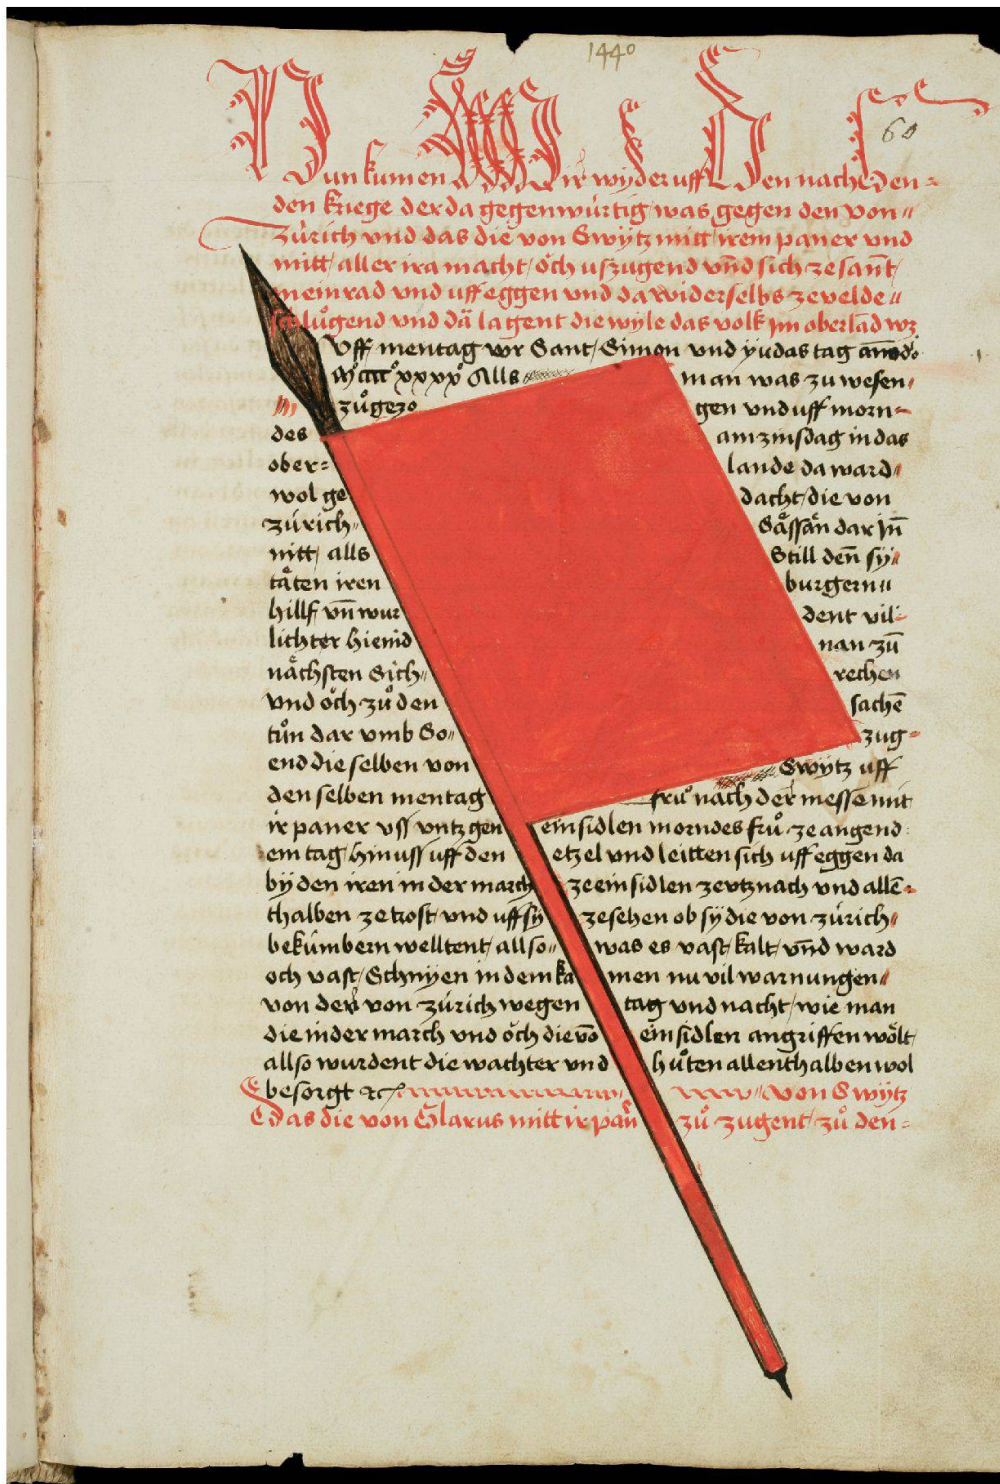 1440
60
Nun kumen Wir wyder uff Den nachenden-
den kriege der da gegenwürtig was gegen den von
Zürich vnd das die von Swÿtz mitt irem paner vnd
mitt aller ira macht öch uszugend vnd sich ze sant
meinrad vnd uff eggen vnd da widerselbs ze velde
schlügend vnd da lagent die wyle das volk jm oberlād wz
Vff mentag vor Sant Simon vnd yudas tag anndo
Mcccc xxxx Alls man was zu wesen
zügezo gen vnd uff morn
des am zinsdag in das
ober lande da ward
wol ge dacht die von
zürich Sässan dar Jn̄
nitt alls Still den̄ sÿ
täten iren burgern
hillf vn̄ wur dent vil
lichter hiemid nan zū
nächsten Sich rechen
vnd öch zů den sachē
tůn dar vmb So zug
end die selben von Swÿtz uff
den selben mentag frů nach der messe mit
ir paner vss vntz gen einsidlen morndes frů ze angend
em tag hinuss uff den etzel vnd leitten sich uff eggen da
bÿ den iren in der march ze einsidlen ze vtznach vnd allē
thalben ze trost vnd uff sÿ ze sehen ob sÿ die von zürich
bekümbern welltent allso was es vast kalt vnd ward
och vast Schnÿen in dem ka men nu vil warnungen
von der von zürich wegen tag vnd nacht wie man
die in der march vnd öch die vō einsidlen angriffen wölt
allso wurdent die wachter vnd hůten allenthalben wol
besorgt &c von Swÿtz
Das die von Glarus mitt ir pan̄ zů zugent zů den